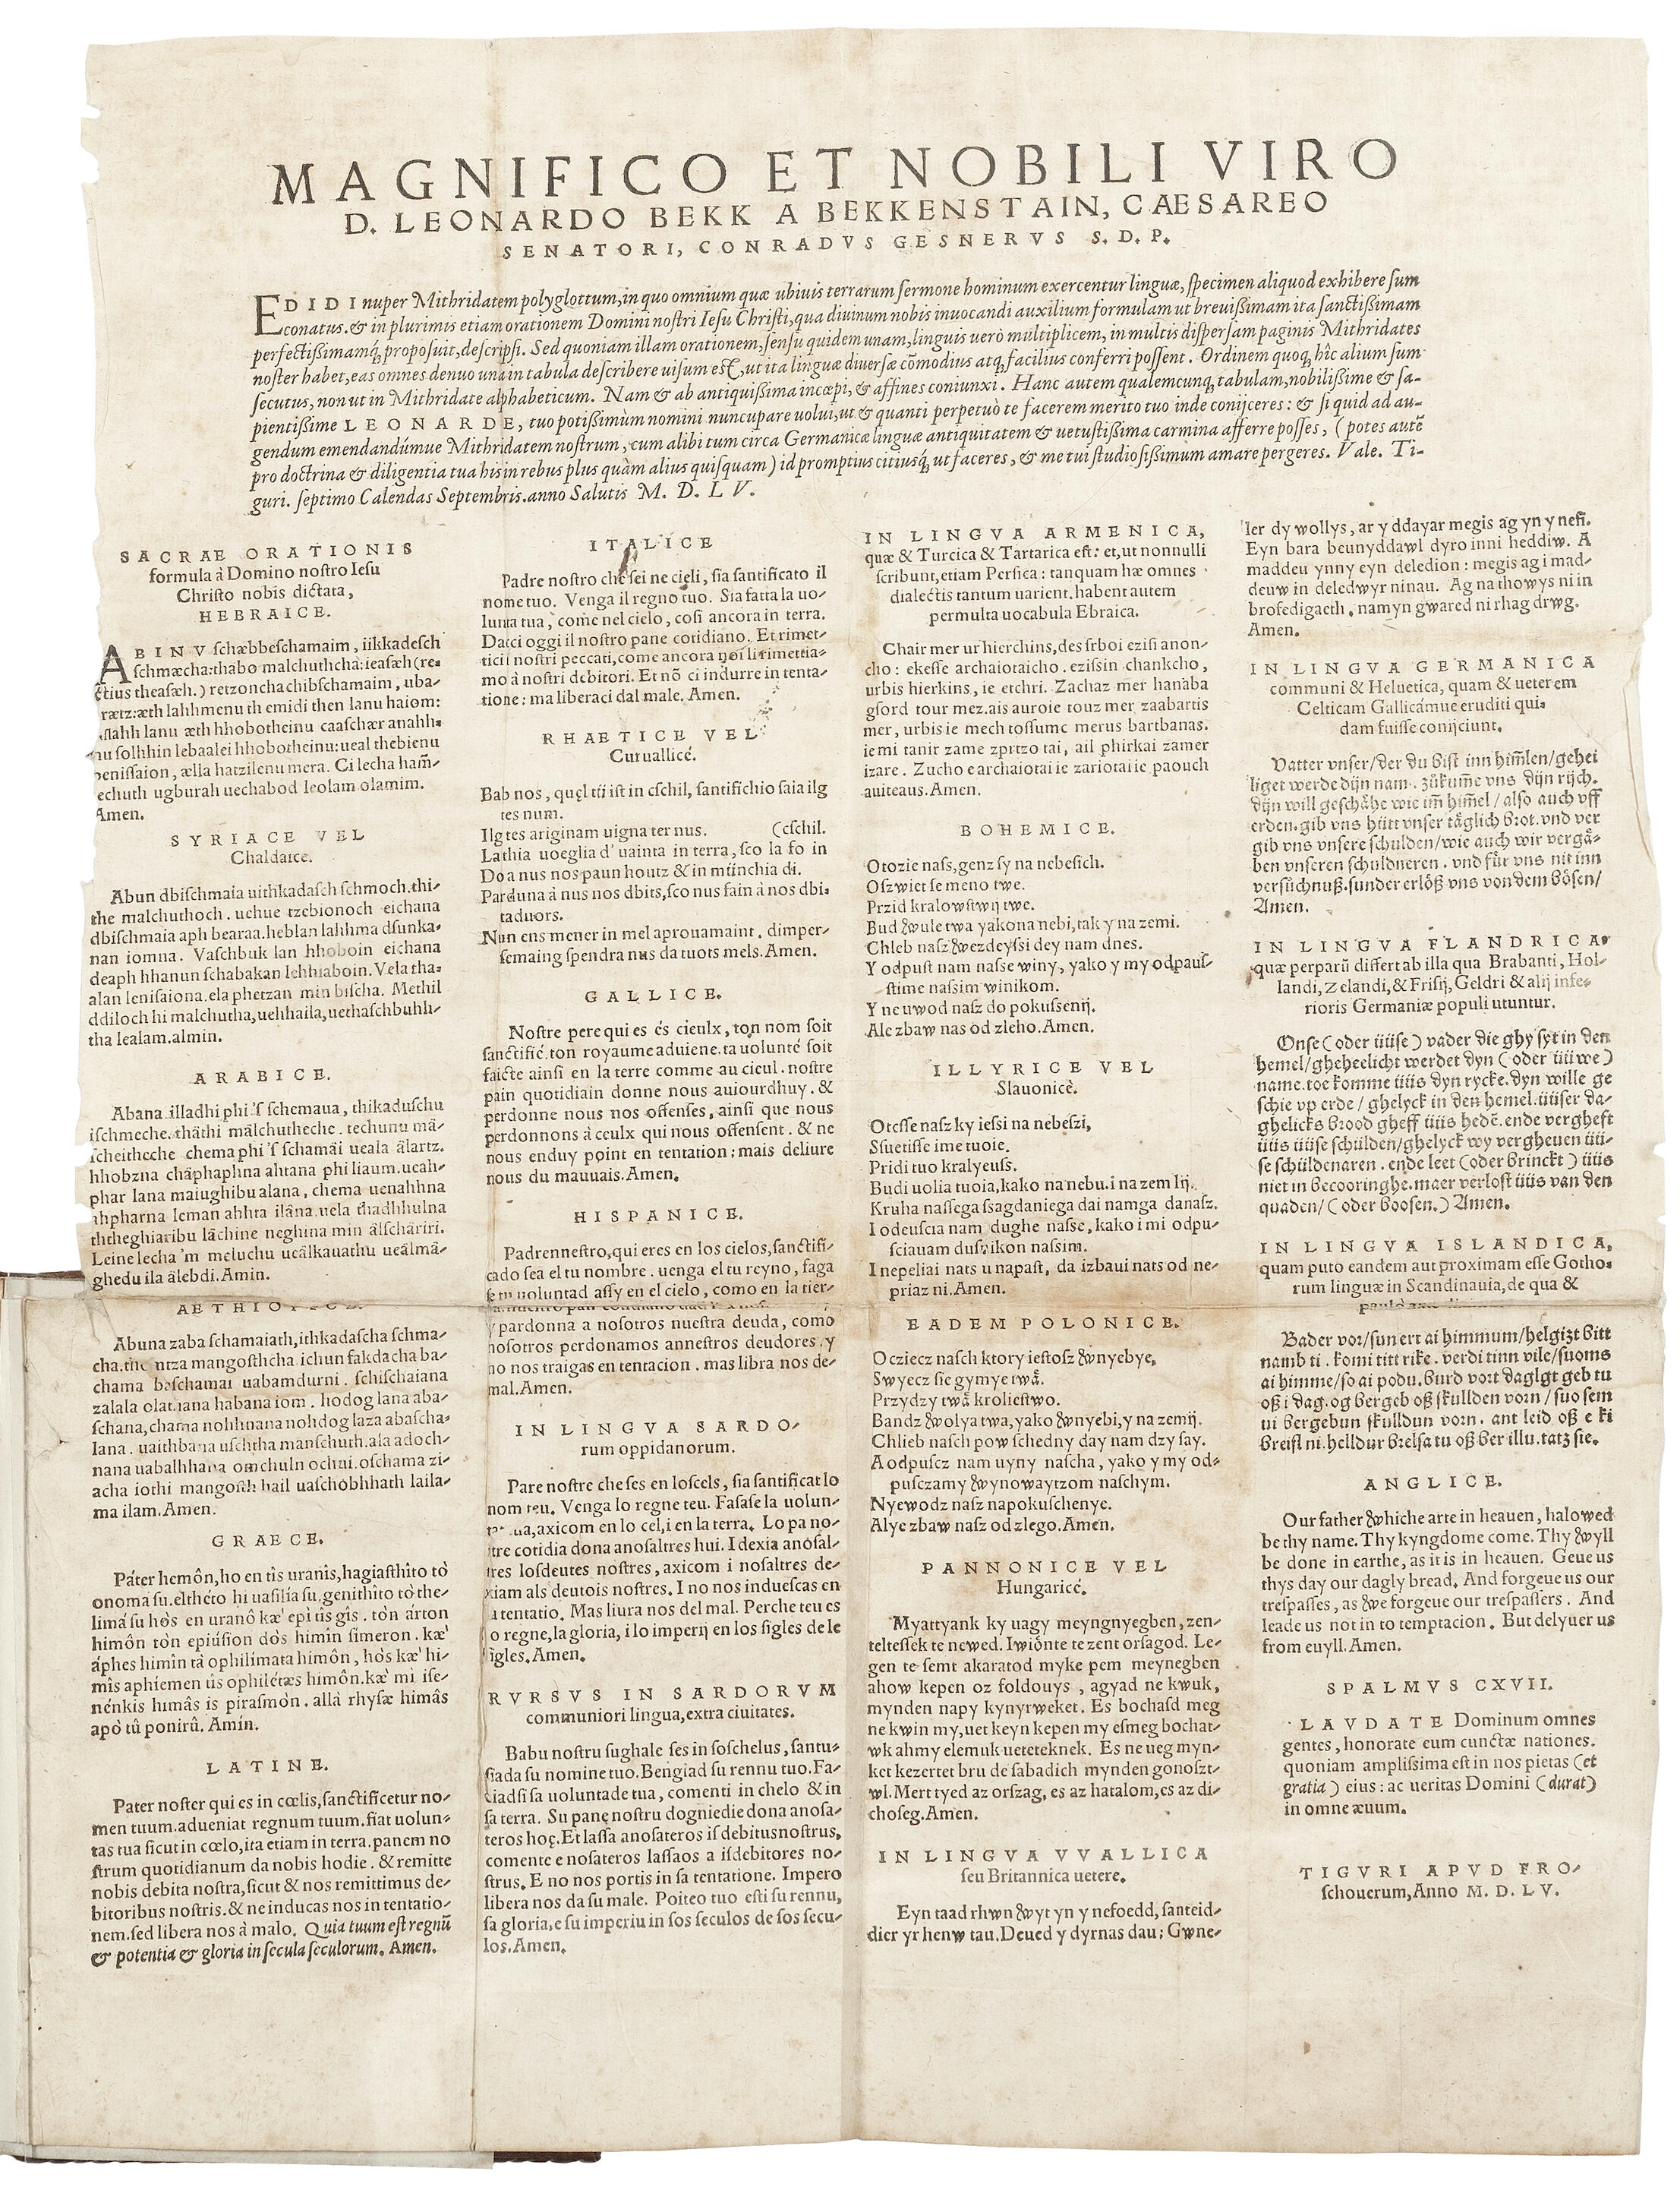 MAGNIFICO ET NOBILI VIRO
D. LEONARDO BEKK A BEKKENSTAIN, CAESAREO
SENATORI, CONRADVS GESNERVS S. D. P.
EDIDI nuper Mithridatem polyglottum, in quo omnium quæ ubiuis terrarum sermone hominum exercentur linguæ, specimen aliquod exhibere sum
conatus. & in plurimis etiam orationem Domini nostri Iesu Christi, qua diuinum nobis inuocandi auxilium formulam ut breuißimam ita sanctißimam
perfectißimamq́; proposuit, descripsi. Sed quoniam illam orationem, sensu quidem unam, linguis uerò multiplicem, in multis dispersam paginis Mithridates
noster habet, eas omnes denuo una in tabula describere uisum est, ut ita linguæ diuersæ cõmodius atq; facilius conferri possent. Ordinem quoq; hîc alium sum
secutus, non ut in Mithridate alphabeticum. Nam & ab antiquißima incœpi, & affines coniunxi. Hanc autem qualemcunq; tabulam, nobilißime & sa-
pientißime LEONARDE, tuo potißimùm nomini nuncupare uolui, ut & quanti perpetuò te facerem merito tuo inde conijceres: & si quid ad au-
gendum emendandúmue Mithridatem nostrum, cum alibi tum circa Germanicæ linguæ antiquitatem & uetustißima carmina afferre posses, (potes autẽ
pro doctrina & diligentia tua his in rebus plus quàm alius quisquam) id promptius citiusq́; ut faceres, & me tui studiosißimum amare pergeres. Vale. Ti-
guri. septimo Calendas Septembris. anno Salutis M. D. LV.
SACRAE ORATIONIS
formula à Domino nostro Iesu
Christo nobis dictata,
HEBRAICE.
ABINV schæbbeschamaim, iikkadesch
schmæcha: thabo malchuthchá: ieasæh (re-
ctius theasæh.) retzoncha chibschamaim, uba-
rætz: æth lahhmenu th emidi then lanu haiom:
slahh lanu æth hhobotheinu caaschær anahh-
nu solhhin lebaalei hhobotheinu: ueal thebienu
benissaion, ælla hatzilenu mera. Ci lecha ham̃-
echuth ugburah uechabod leolam olamim.
Amen.
SYRIACE VEL
Chaldaice.
Abun dbischmaia uithkadasch schmoch. thi-
the malchuthoch. uehue tzebionoch eichana
dbischmaia aph bearaa. heblan lahhma dsunka-
nan iomna. Vaschbuk lan hhoboin eichana
deaph hhanun schabakan lehhiaboin. Vela tha-
alan lenisaiona. ela phetzan min bischa. Methil
ddiloch hi malchutha, uehhaila, uethaschbuhh-
tha lealam. almin.
ARABICE.
Abana illadhi phi 'ſ schemaua, thikaduschu
ischmeche. thäthi mälchutheche. techunu mä-
scheitheche chema phi 'ſ schamäi ueala älartz.
hhobzna chäphaphna ahtana phi liaum. ueah-
phar lana maiughibu alana, chema uenahhna
ahpharna leman ahhta ilâna. uela thadhhulna
ththeghiaribu lächine neghina min älschäriri.
Leine lecha 'm meluchu ueälkauathu ueälmä-
ghedu ila älebdi. Amin.
Abuna zaba schamaiath, ithkadascha schma-
cha. the ntza mangosthcha ichun fakdacha ba-
chama baschamai uabamdurni. schischaiana
zalala olathana habana iom. hodog lana aba-
schana, chama nohhnana nohdog laza abascha-
lana. uaithbana uschtha manschuth. ala adoch-
nana uabalhhana omchuln ochui. oschama zi-
acha iothi mangosth hail uaschobhhath laila-
ma ilam. Amen.
GRAECE.
Páter hemôn, ho en tîs uranîs, hagiasthîto tò
onoma su. elthéto hi uasilía su. genithîto tò the-
limá su hòs en uranô kæ' epì tîs gîs. tòn árton
himôn tòn epiúsion dòs himîn símeron. kæ'
áphes himîn tà ophilímata himôn, hòs kæ' hi-
mîs aphíemen tîs ophilétæs himôn. kæ' mì ise-
nénkis himâs is pirasmòn. allà rhysæ himâs
apò tû ponirû. Amín.
LATINE.
Pater noster qui es in cœlis, sanctificetur no-
men tuum. adueniat regnum tuum. fiat uolun-
tas tua sicut in cœlo, ita etiam in terra. panem no
strum quotidianum da nobis hodie. & remitte
nobis debita nostra, sicut & nos remittimus de-
bitoribus nostris. & ne inducas nos in tentatio-
nem. sed libera nos à malo. Quia tuum est regnũ
& potentia & gloria in secula seculorum. Amen.
ITALICE
Padre nostro che sei ne cieli, sia santificato il
nome tuo. Venga il regno tuo. Sia fatta la uo-
lunta tua, come nel cielo, cosi ancora in terra.
Dacci oggi il nostro pane cotidiano. Et rimet-
tici i nostri peccati, come ancora noi li rimettia-
mo à nostri debitori. Et nõ ci indurre in tenta-
tione: ma liberaci dal male. Amen.
RHAETICE VEL
Curuallicè.
Bab nos, quęl tü ist in eschil, santifichio saia ilg
tes num.
Ilg tes ariginam uigna ter nus. (eschil.
Lathia uoeglia d' uainta in terra, sco la fo in
Do a nus nos paun houtz & in münchia di.
Parduna à nus nos dbits, sco nus fain à nos dbi-
taduors.
Nun ens mener in mel aprouamaint. dimper-
semaing spendra nus da tuots mels. Amen.
GALLICE.
Nostre pere qui es és cieulx, ton nom soit
sanctifié. ton royaume aduiene. ta uolunté soit
faicte ainsi en la terre comme au cieul. nostre
pain quotidiain donne nous auiourdhuy. &
perdonne nous nos offenses, ainsi que nous
perdonnons à ceulx qui nous offensent. & ne
nous enduy point en tentation: mais deliure
nous du mauuais. Amen.
HISPANICE.
Padre nuestro, qui eres en los cielos, sanctifi-
cado sea el tu nombre. uenga el tu reyno, faga
se tu uoluntad assy en el cielo, como en la tier-
y pardonna a nosotros nuestra deuda, como
nosotros perdonamos a nnestros deudores. y
no nos traigas en tentacion. mas libra nos de-
mal. Amen.
IN LINGVA SARDO-
rum oppidanorum.
Pare nostre che ses en los cels, sia santificat lo
nom teu. Venga lo regne teu. Fasase la uolun-
tua, axicom en lo cel, i en la terra. Lo pa no-
stre cotidia dona anosaltres hui. I dexia anosal-
tres los deutes nostres, axicom i nosaltres de-
xiam als deutois nostres. I no nos induescas en
la tentatio. Mas liura nos del mal. Perche teu es
lo regne, la gloria, i lo imperij en los sigles de le
sigles. Amen.
RVRSVS IN SARDORVM
communiori lingua, extra ciuitates.
Babu nostru sughale ses in sos chelus, santu-
siada su nomine tuo. Bengiad su rennu tuo. Fa-
ciadsi sa uoluntade tua, comenti in chelo & in
sa terra. Su pane nostru dogniedie dona anosa-
teros hoę. Et lassa anosateros is debitus nostrus,
comente e nosateros lassaos a is debitores no-
strus. E no nos portis in sa tentatione. Impero
libera nos da su male. Poiteo tuo esti su rennu,
sa gloria, e su imperiu in sos seculos de sos secu-
los. Amen.
IN LINGVA ARMENICA,
quæ & Turcica & Tartarica est: et, ut nonnulli
scribunt, etiam Persica: tanquam hæ omnes
dialectis tantum uarient. habent autem
permulta uocabula Ebraica.
Chair mer ur hierchins, des srboi ezisi anon-
cho: ekesse archaiotaicho. ezissin chankcho,
urbis hierkins, ie etchri. Zachaz mer hanaba
gsord tour mez. ais auroie touz mer zaabartis
mer, urbis ie mech tossumc merus bartbanas.
ie mi tanir zame zprtzo tai, ail phirkai zamer
izare. Zucho e archaiotai ie zariotai ie paouch
auiteaus. Amen.
BOHEMICE.
Otozie nass, genz sy na nebesich.
Oszwiet se meno twe.
Przid kralowstwij twe.
Bud wule twa yakona nebi, tak y na zemi.
Chleb nasz wezdeyssi dey nam dnes.
Y odpust nam nasse winy, yako y my odpaus-
stime nassim winikom.
Y ne uwod nasz do pokussenij.
Ale zbaw nas od zleho. Amen.
ILLYRICE VEL
Slauonicè.
Otcsse nasz ky iessi na nebeszi,
Ssuetisse ime tuoie.
Pridi tuo kralyeuss.
Budi uolia tuoia, kako na nebu. i na zem lij.
Kruha nassega ssagdaniega dai namga danasz.
I odeuscia nam dughe nasse, kako i mi odpu-
sciauam dusnikon nassim.
I nepeliai nats u napast, da izbaui nats od ne-
priaz ni. Amen.
EADEM POLONICE.
Ocziecz nasch ktory iestosz wnyebye,
Swyecz sie gymye twã.
Przydzy twã kroliestwo.
Bandz wolya twa, yako wnyebi, y na zemij.
Chlieb nasch pow schedny day nam dzy say.
A odpuscz nam uyny nascha, yako y my od-
pusczamy wynowaytzom naschym.
Nyewodz nasz napokuschenye.
Alye zbaw nasz od zlego. Amen.
PANNONICE VEL
Hungaricè.
Myattyank ky uagy meyngnyegben, zen-
teltessek te newed. Iwiönte te zent orsagod. Le-
gen te semt akaratod myke pem meynegben
ahow kepen oz foldouys, agyad ne kwuk,
mynden napy kynyrweket. Es bochasd meg
ne kwin my, uet keyn kepen my esmeg bochat-
wk ahmy elemuk ueteteknek. Es ne ueg myn-
ket kezertet bru de sabadich mynden gonoszt-
wl. Mert tyed az orszag, es az hatalom, es az di-
choseg. Amen.
IN LINGVA VVALLICA
seu Britannica uetere.
Eyn taad rhwn wyt yn y nefoedd, santeid-
dier yr henw tau. Deued y dyrnas dau: Gwne-
ler dy wollys, ar y ddayar megis ag yn y nefi.
Eyn bara beunyddawl dyro inni heddiw. A
maddeu ynny eyn deledion: megis ag i mad-
deuw in deledwyr ninau. Ag na thowys ni in
brofedigaeth. namyn gwared ni rhag drwg.
Amen.
IN LINGVA GERMANICA
communi & Heluetica, quam & ueterem
Celticam Gallicámue eruditi qui-
dam fuisse conijciunt.
Vatter vnser/der du bist inn him̃len/gehei
liget werde dijn nam. zůkum̃e vns dijn rijch.
dijn will geschähe wie im̃ him̃el / also auch vff
erden. gib vns hütt vnser täglich brot. vnd ver
gib vns vnsere schulden/wie auch wir vergä-
ben vnseren schuldneren. vnd für vns nit inn
versüchnuß. sunder erlöß vns von dem bösen/
Amen.
IN LINGVA FLANDRICA,
quæ parũ differt ab illa qua Brabanti, Hol-
landi, Zelandi, & Frisij, Geldri & alij infe-
rioris Germaniæ populi utuntur.
Onse (oder üüse) vader die ghy syt in den
hemel/gheheelicht werdet dyn (oder üüwe)
name. toe komme üüs dyn rycke. dyn wille ge
schie vp erde / ghelyck in den hemel. üüser da-
ghelicks brood gheff üüs hedẽ. ende vergheft
üüs üüse schülden/ghelyck wy vergheuen üü-
se schüldenaren. ende leet (oder brinckt) üüs
niet in becooringhe. maer verlost üüs van den
quaden/ (oder boosen.) Amen.
IN LINGVA ISLANDICA,
quam puto eandem aut proximam esse Gotho-
rum linguæ in Scandinauia, de qua &
Bader vor/sun ert ai himmum/helgizt bitt
namb ti. komi titt rike. verdi tinn vile/suoms
ai himme/so ai podu. burd vort daglgt geb tu
oß i dag. og bergeb oß skullden vorn / suo sem
ui bergebun skulldun vorn. ant leid oß e ki
breistni. helldur brelsa tu oß ber illu. tatz sie.
ANGLICE.
Our father whiche arte in heauen, halowed
be thy name. Thy kyngdome come. Thy wyll
be done in earthe, as it is in heauen. Geue us
thys day our dagly bread. And forgeue us our
trespasses, as we forgeue our trespassers. And
leade us not in to temptacion. But delyuer us
from euyll. Amen.
SPALMVS CXVII.
LAVDATE Dominum omnes
gentes, honorate eum cunctæ nationes.
quoniam amplissima est in nos pietas (et
gratia) eius: ac ueritas Domini (durat)
in omne æuum.
TIGVRI APVD FRO-
schouerum, Anno M. D. LV.